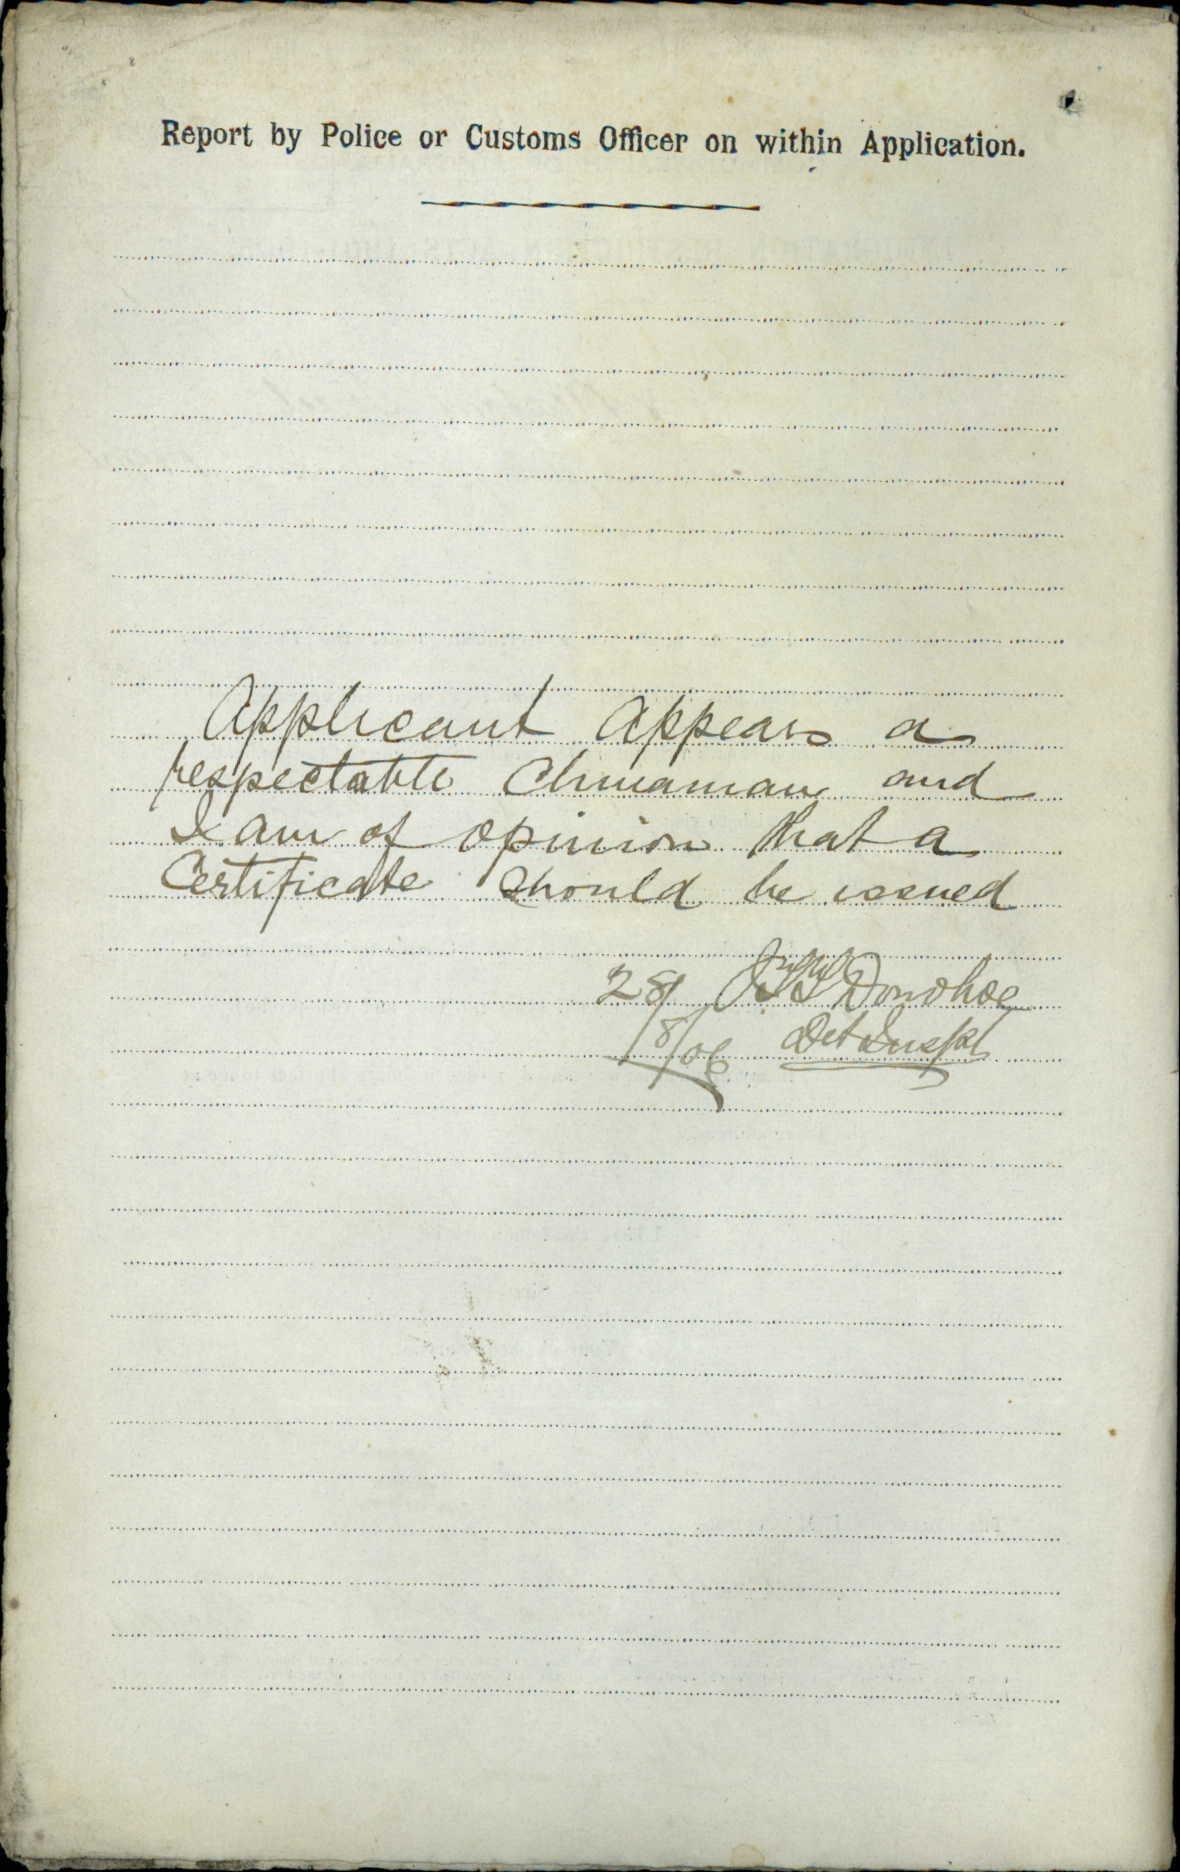 Report by Police or Customs Officer on within Application.
Applicant appears a
respectable Chinaman and
I am of opinion that a
Certificate should be issued
28/8/06 Donohoe
Det Inspr